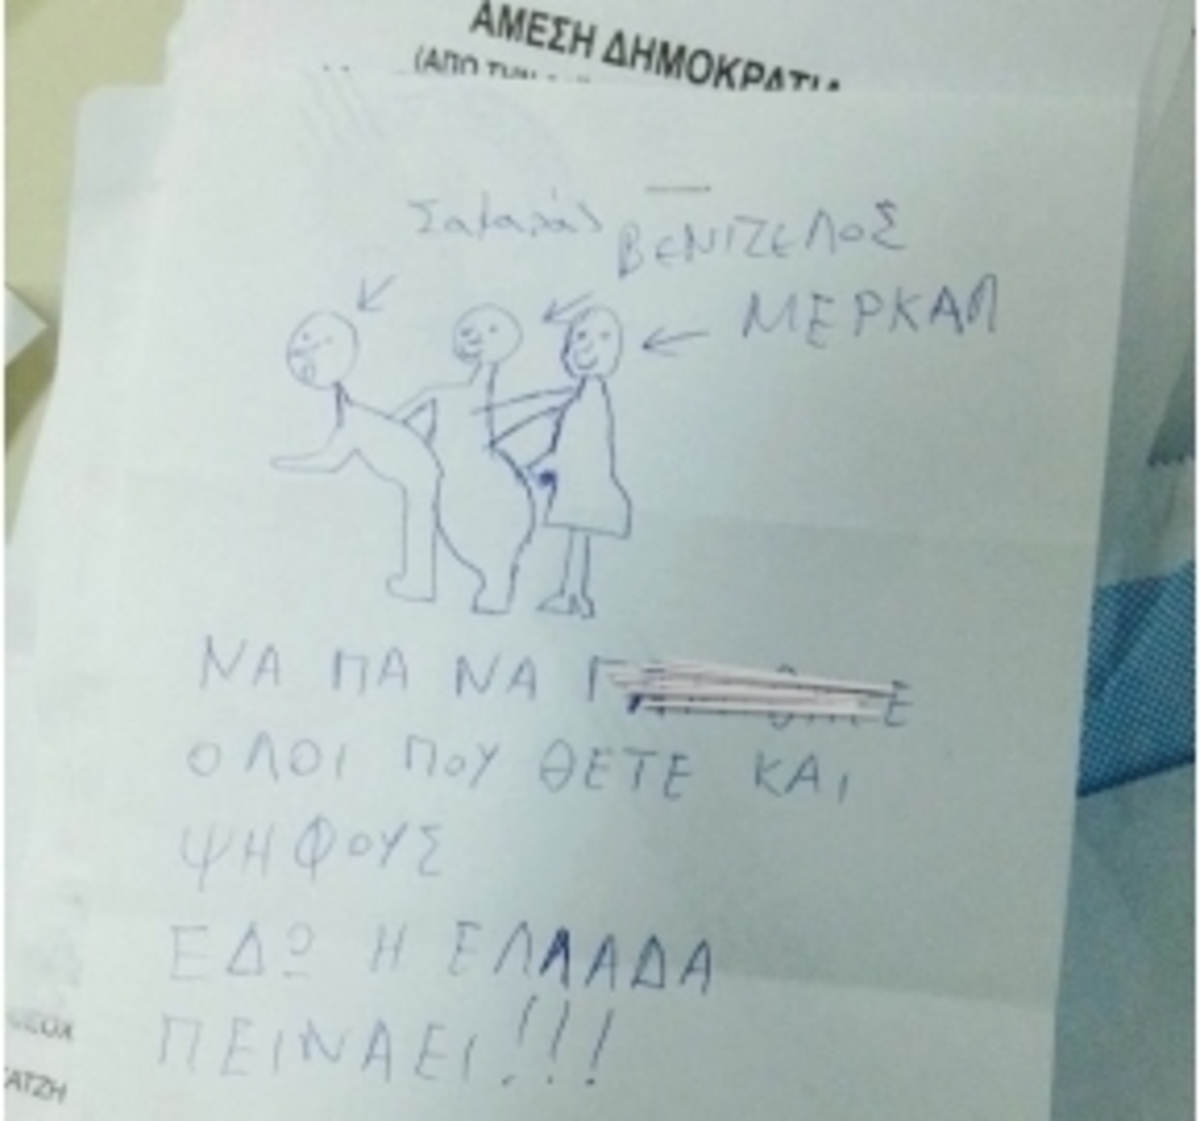 ΑΜΕΣΗ ΔΗΜΟΚΡΑΤΙΑ
(ΑΠΟ ΤΗΝ
Σαμαράς ΒΕΝΙΖΕΛΟΣ
ΜΕΡΚΑΛ
ΝΑ ΠΑ ΝΑ
ΟΛΟΙ ΠΟΥ ΘΕΤΕ ΚΑΙ
ΨΗΦΟΥΣ
ΕΔΩ Η ΕΛΛΑΔΑ
ΠΕΙΝΑΕΙ!!!
ΑΤΖΗ